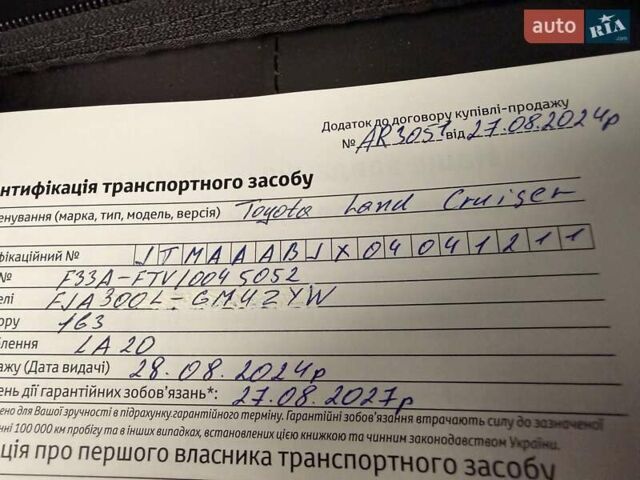 auto RIA .com
Додаток до договору купівлі-продажу
№ AR3051 від 27.08.2024р
нтифікація транспортного засобу
енування (марка, тип, модель, версія) Toyota Land Cruiser
фікаційний № JTMAAABJX04041211
№ F33A-FTV/0045052
елі FJA300L-GMUZYW
ору 163
блення LA20
ажу (Дата видачі) 28.08.2024р
ень дії гарантійних зобов'язань*: 27.08.2027р
ено для Вашої зручності в підрахунку гарантійного терміну. Гарантійні зобов'язання втрачають силу до зазначеної
нні 100 000 км пробігу та в інших випадках, встановлених цією книжкою та чинним законодавством України.
ація про першого власника транспортного засобу